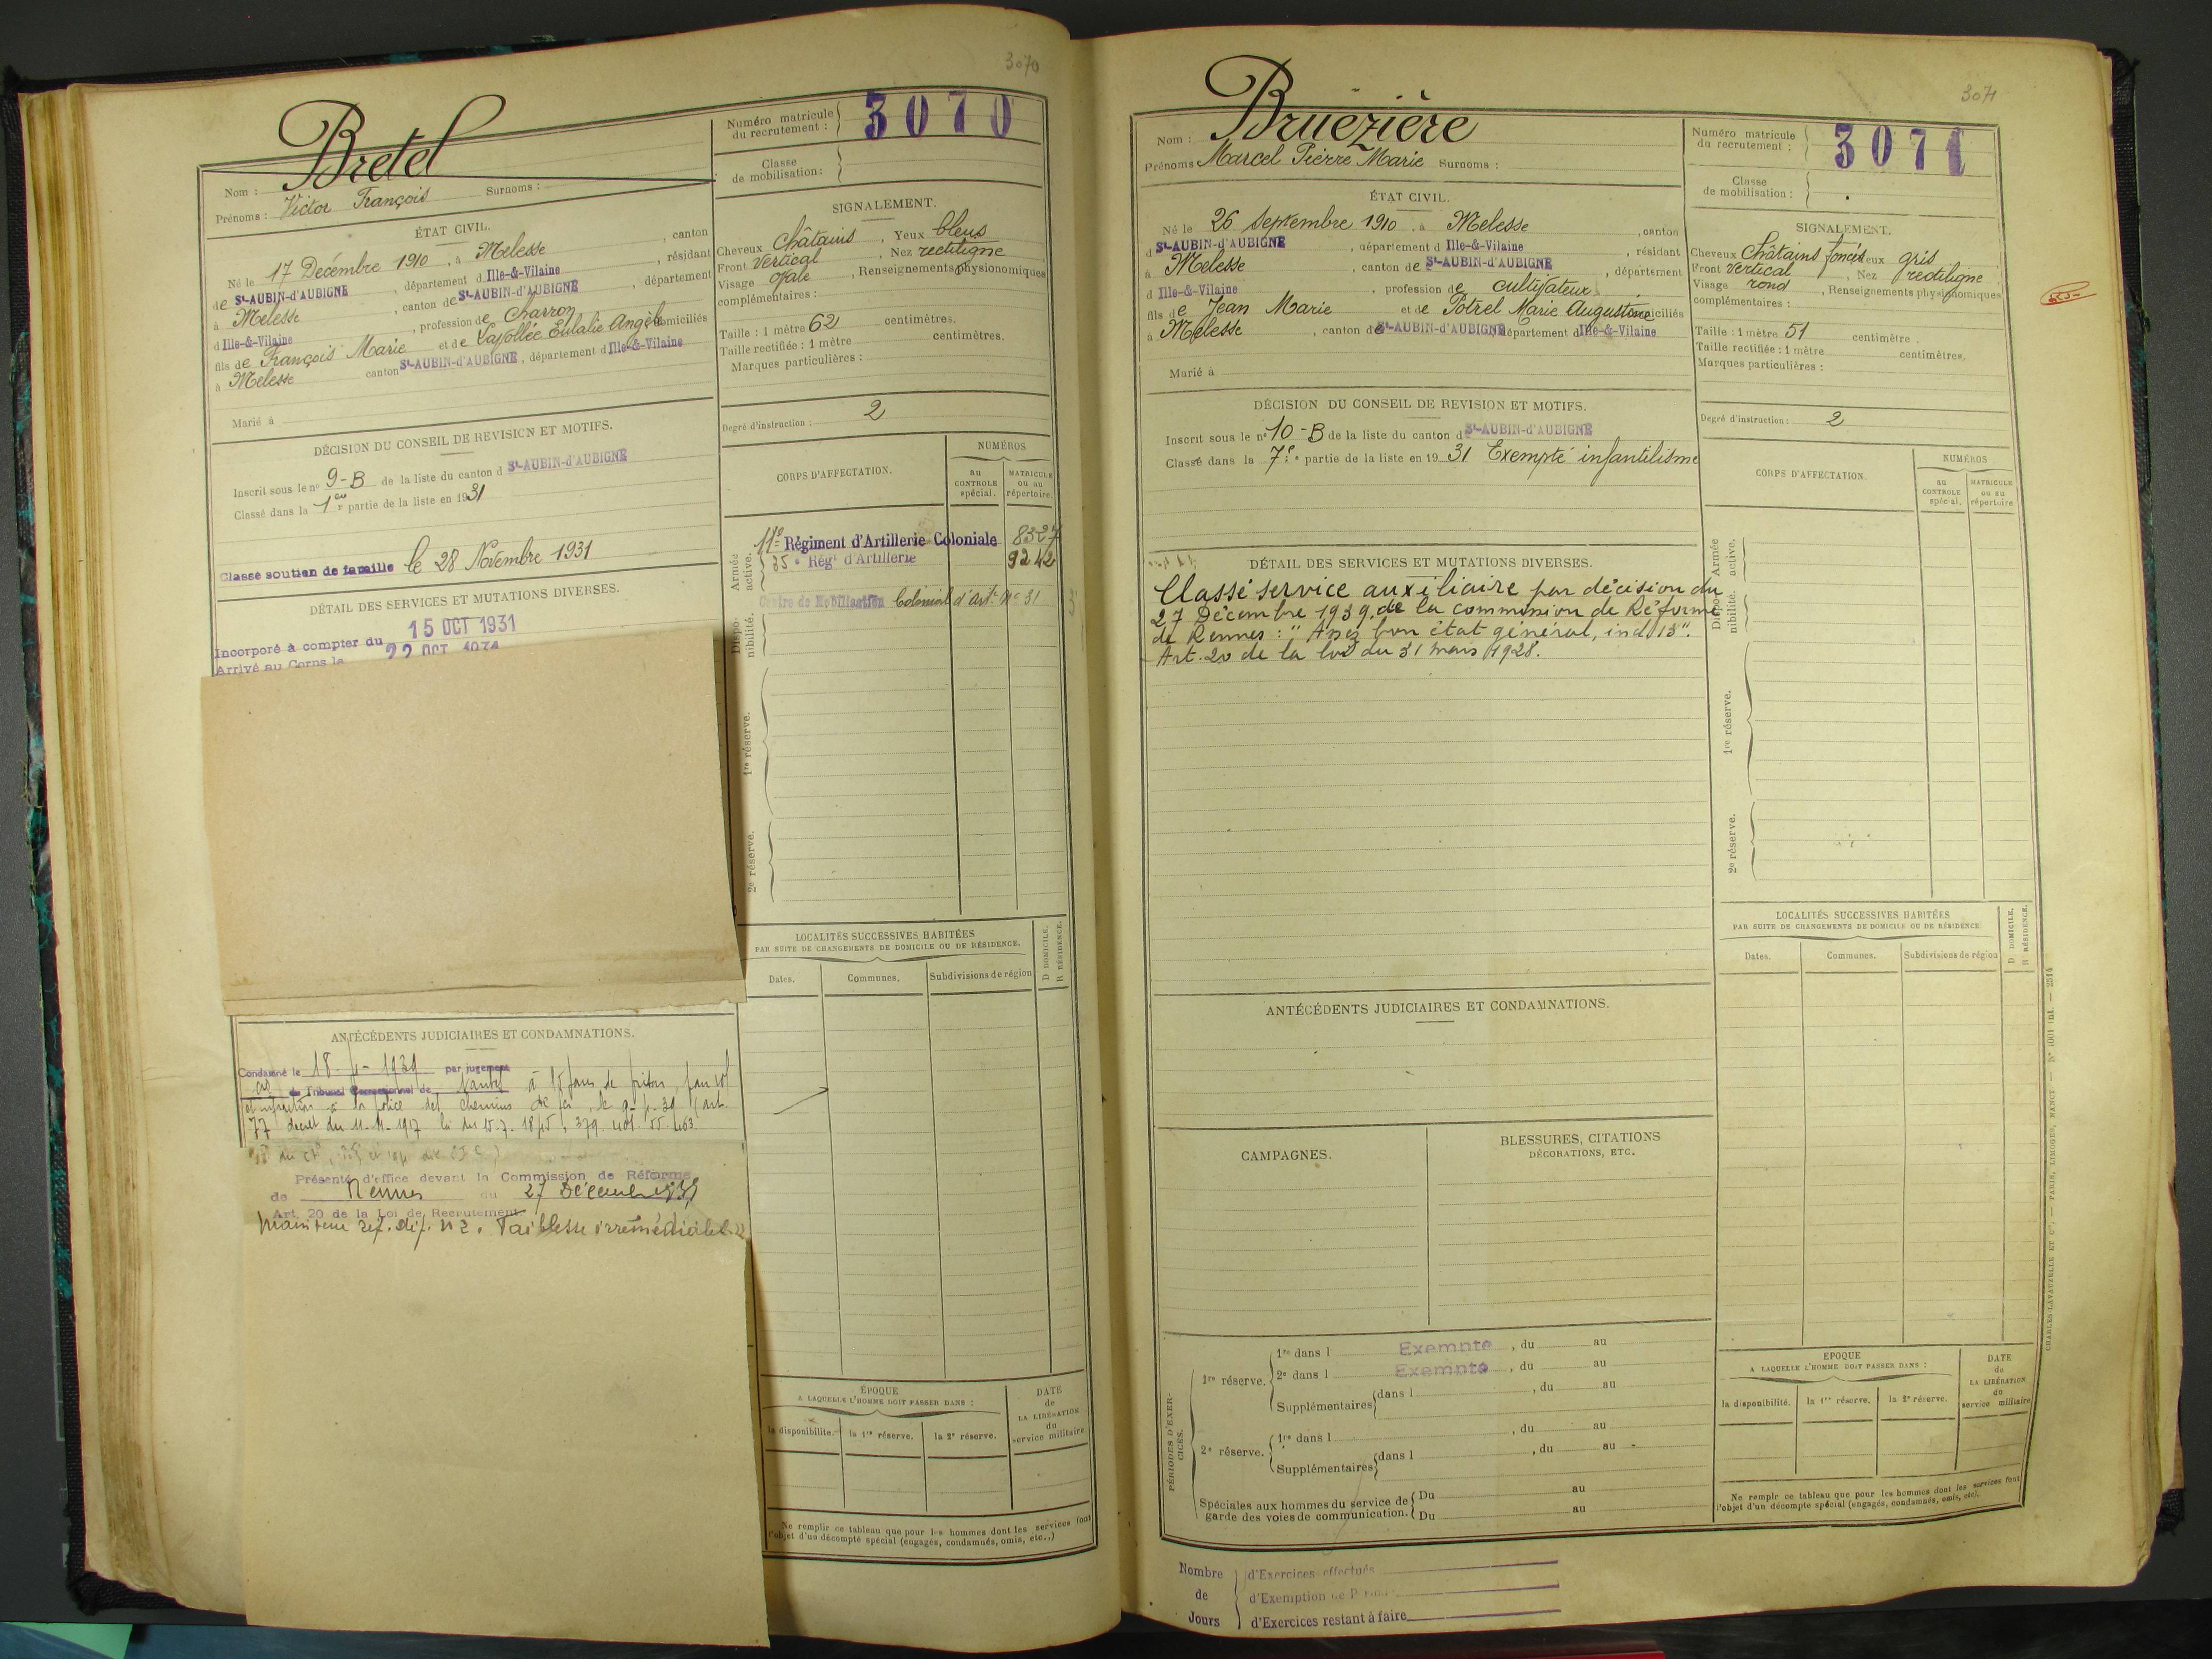 3070
Bretel
Nom :
Prénoms : Victor François Surnoms :
Numéro matricule du recrutement : 3070
Classe de mobilisation :
ÉTAT CIVIL.
Né le 17 Décembre 1910, à Melesse, canton
de St-AUBIN-d'AUBIGNÉ, département d Ille-&-Vilaine, résidant
à Melesse, canton de St-AUBIN-d'AUBIGNÉ, département
d Ille-&-Vilaine, profession de Charron
fils de François Marie et de Eulalie Angèle domiciliés
à Melesse canton St-AUBIN-d'AUBIGNE, département d Ille-&-Vilaine
Marié à
SIGNALEMENT.
Cheveux Châtains, Yeux bleus
Front Vertical, Nez rectiligne
Visage Ovale, Renseignements physionomiques
complémentaires :
Taille : 1 mètre 62 centimètres.
Taille rectifiée : 1 mètre centimètres.
Marques particulières :
Degré d'instruction : 2
DÉCISION DU CONSEIL DE REVISION ET MOTIFS.
Inscrit sous le n° 9-B de la liste du canton d St-AUBIN-d'AUBIGNE
Classé dans la 1ère partie de la liste en 1931
Classé soutien de famille le 28 Novembre 1931
DÉTAIL DES SERVICES ET MUTATIONS DIVERSES.
Incorporé à compter du 15 OCT 1931
Arrivé au Corps le 22 OCT 1931
CORPS D'AFFECTATION.
NUMÉROS
au CONTROLE spécial.
MATRICULE ou au répertoire.
Armée active.
11e Régiment d'Artillerie Coloniale 8327
35e Régt d'Artillerie 9242
Dispo-nibilité.
Centre de Mobilisation Colonial d'Art. N° 31
1re réserve.
2e réserve.
LOCALITÉS SUCCESSIVES HABITÉES
PAR SUITE DE CHANGEMENTS DE DOMICILE OU DE RÉSIDENCE.
D DOMICILE.
R RÉSIDENCE.
Dates. Communes. Subdivisions de région
ANTÉCÉDENTS JUDICIAIRES ET CONDAMNATIONS.
Condamné le par jugement
du Tribunal Correctionnel de à 15 jours de prison
77 décret du 11.11.1917
Présenté d'office devant la Commission de Réforme
de Rennes du 27 Décembre 1939
Art. 20 de la Loi de Recrutement.
Maintenu réf. déf. n° 2.
ÉPOQUE
A LAQUELLE L'HOMME DOIT PASSER DANS :
la disponibilité. la 1re réserve. la 2e réserve.
DATE de LA LIBÉRATION du service militaire
Ne remplir ce tableau que pour les hommes dont les services font
l'objet d'un décompte spécial (engagés, condamnés, omis, etc..)
3071
Nom : Bruezière
Prénoms Marcel Pierre Marie Surnoms :
Numéro matricule du recrutement : 3071
Classe de mobilisation :
ÉTAT CIVIL.
Né le 26 Septembre 1910, à Melesse, canton
d St-AUBIN-d'AUBIGNE, département d Ille-&-Vilaine, résidant
à Melesse, canton de St-AUBIN-d'AUBIGNE, département
d Ille-&-Vilaine, profession de cultivateur
fils de Jean Marie et de Potrel Marie Augustine domiciliés
à Melesse, canton de St-AUBIN-d'AUBIGNE département d Ille-&-Vilaine
Marié à
SIGNALEMENT.
Cheveux Châtains foncés Yeux gris
Front Vertical, Nez rectiligne
Visage rond, Renseignements physionomiques
complémentaires :
Taille : 1 mètre 51 centimètre.
Taille rectifiée : 1 mètre centimètres.
Marques particulières :
Degré d'instruction : 2
DÉCISION DU CONSEIL DE REVISION ET MOTIFS.
Inscrit sous le n° 10-B de la liste du canton d St-AUBIN-d'AUBIGNE
Classé dans la 7e partie de la liste en 1931 Exempté infantilisme
DÉTAIL DES SERVICES ET MUTATIONS DIVERSES.
Classé service auxiliaire par décision du
27 Décembre 1939, de la commission de Réforme
de Rennes : "Assez bon état général, ind 13".
Art. 20 de la loi du 31 mars 1928.
CORPS D'AFFECTATION.
NUMÉROS
au CONTROLE spécial.
MATRICULE ou au répertoire
Armée active.
Dispo-nibilité.
1re réserve.
2e réserve.
LOCALITÉS SUCCESSIVES HABITÉES
PAR SUITE DE CHANGEMENTS DE DOMICILE OU DE RÉSIDENCE
D DOMICILE.
R RÉSIDENCE.
Dates. Communes. Subdivisions de région
ANTÉCÉDENTS JUDICIAIRES ET CONDAMNATIONS.
CAMPAGNES.
BLESSURES, CITATIONS
DÉCORATIONS, ETC.
PÉRIODES D'EXERCICES.
1re réserve.
1re dans l Exempte, du au
2e dans l Exempte, du au
Supplémentaires dans l , du au
2e réserve.
1re dans l , du au
Supplémentaires dans l , du au
Spéciales aux hommes du service de garde des voies de communication.
Du au
Du au
ÉPOQUE
A LAQUELLE L'HOMME DOIT PASSER DANS :
la disponibilité. la 1re réserve. la 2e réserve.
DATE de LA LIBÉRATION du service militaire
Ne remplir ce tableau que pour les hommes dont les services font
l'objet d'un décompte spécial (engagés, condamnés, omis, etc).
Nombre de Jours
d'Exercices effectués
d'Exemption de
d'Exercices restant à faire
CHARLES-LAVAUZELLE ET Cie, — PARIS, LIMOGES, NANCY